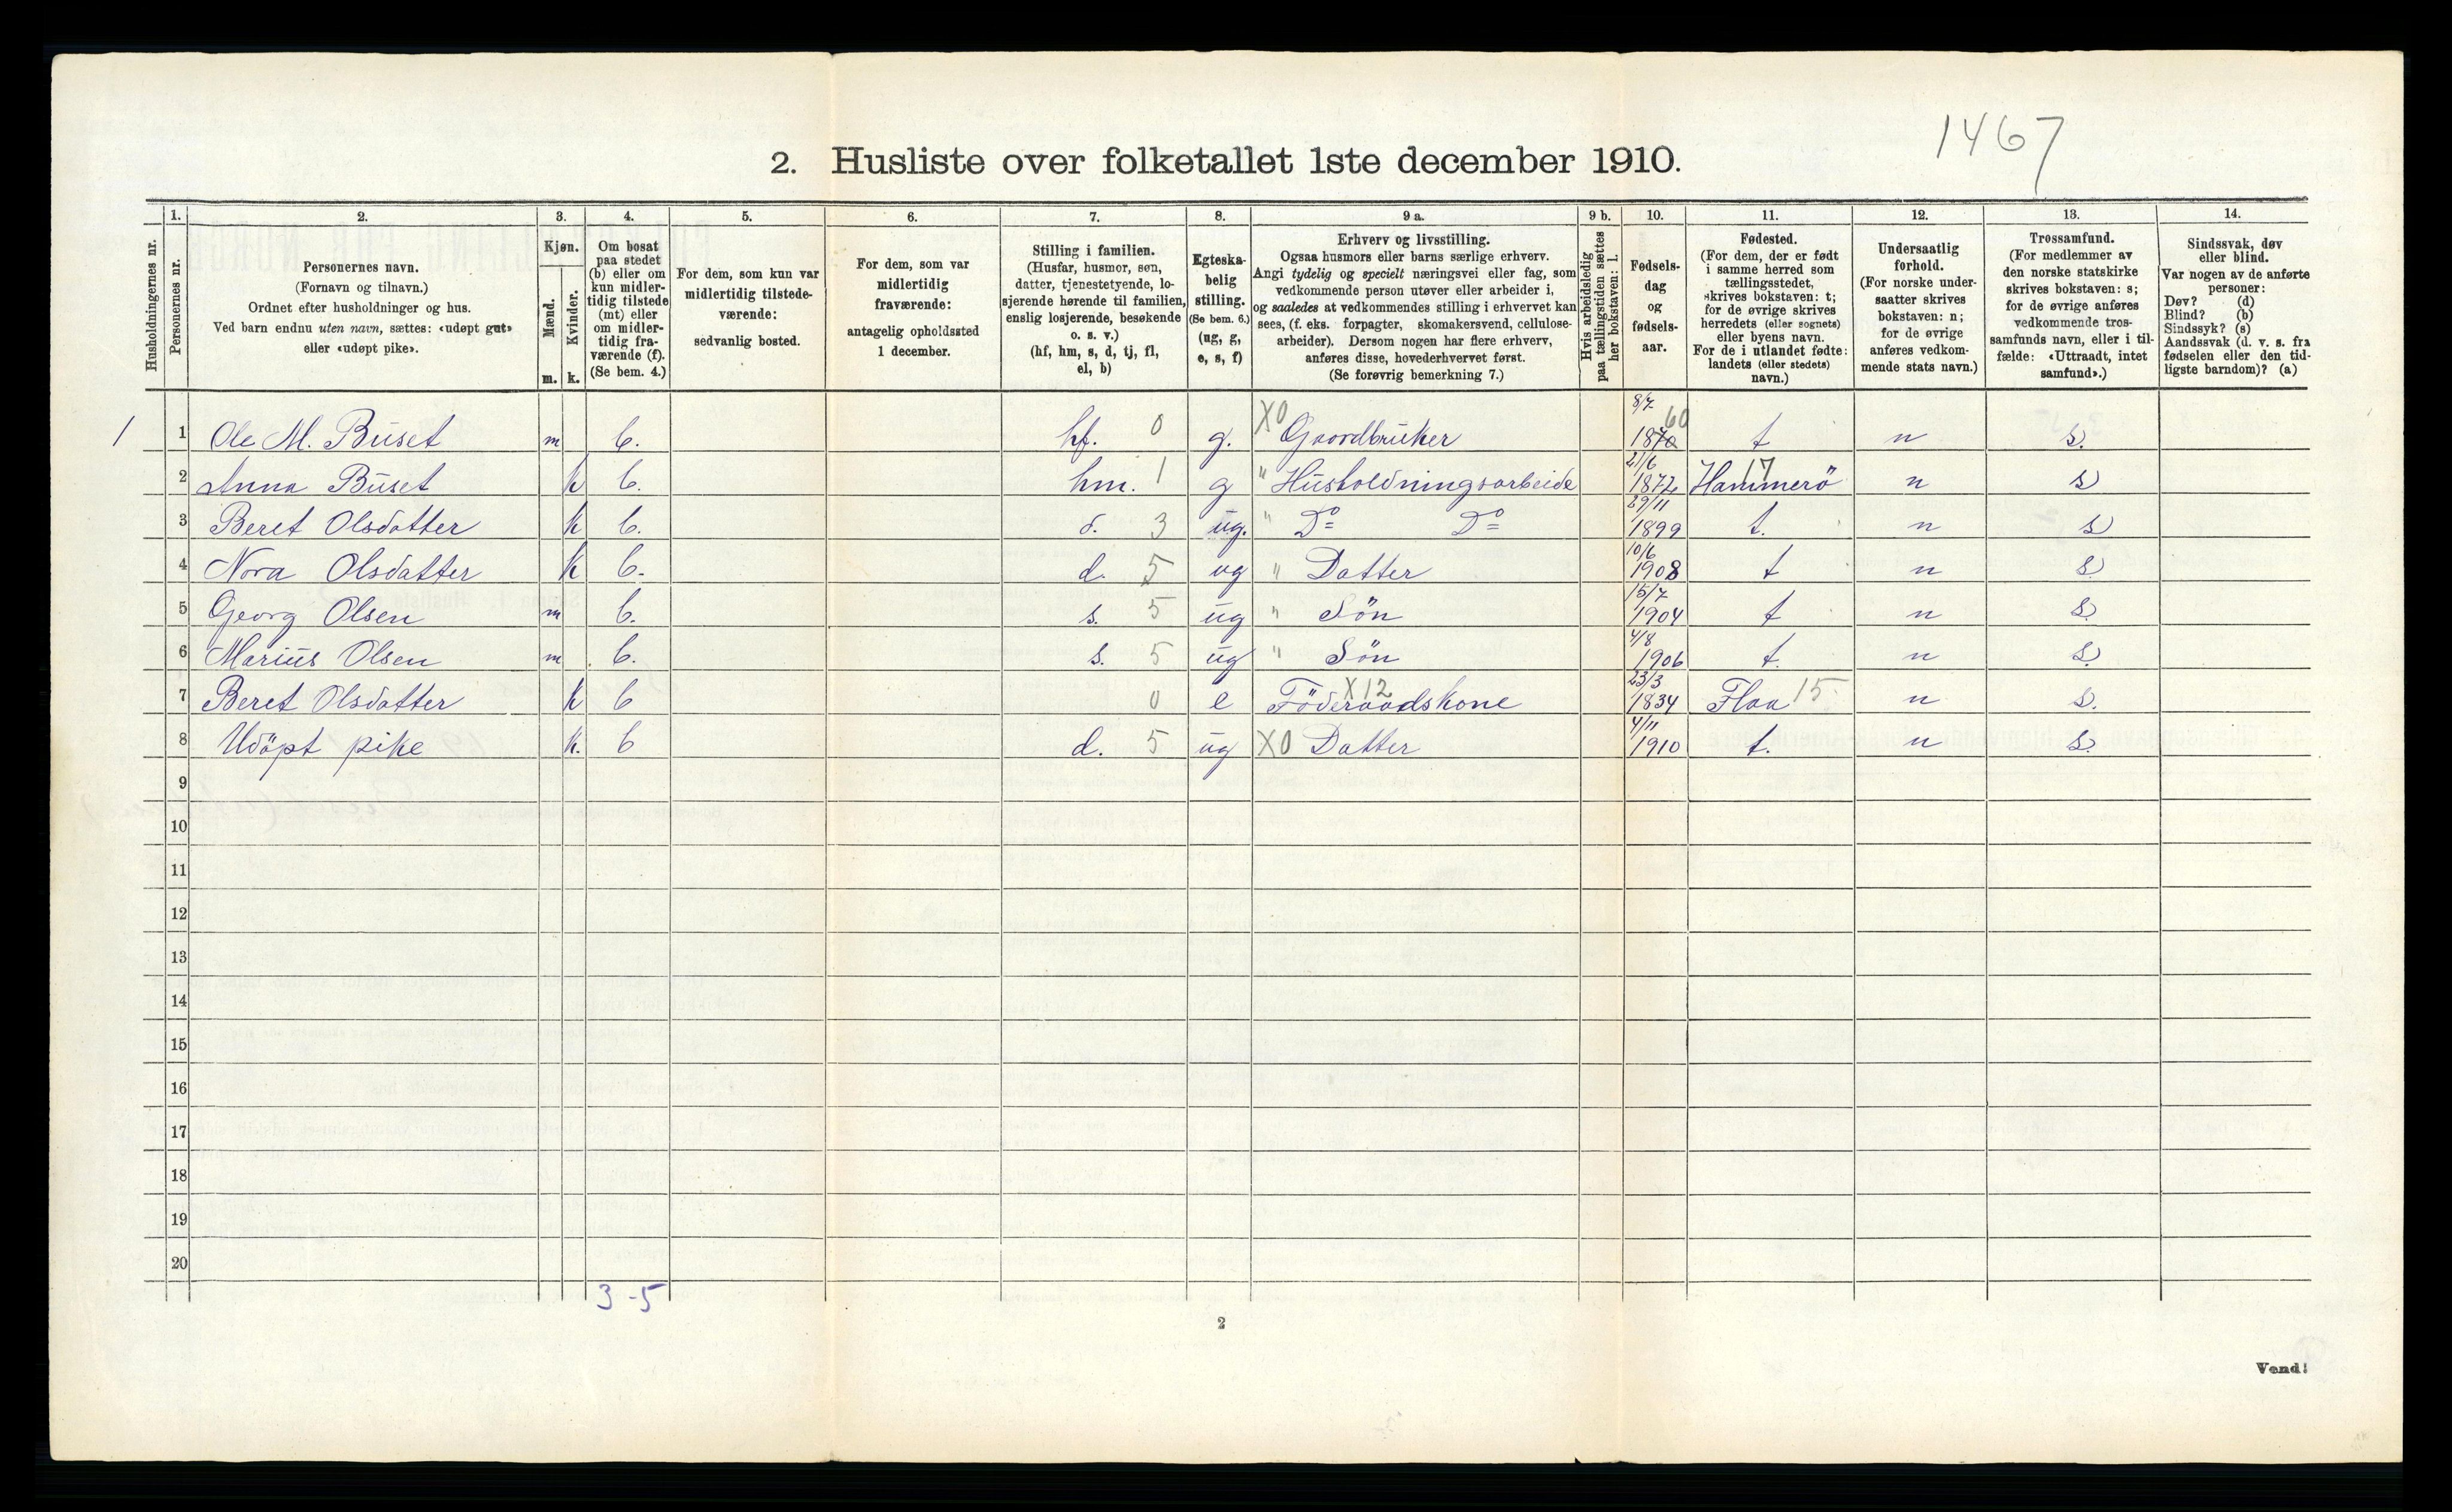 1467
2. Husliste over folketallet 1ste december 1910.
1. 2. 3. 4. 5. 6. 7. 8. 9 a. 9 b. 10. 11. 12. 13. 14.
Husholdningernes nr.
Personernes nr.
Personernes navn.
(Fornavn og tilnavn.)
Ordnet efter husholdninger og hus.
Ved barn endnu uten navn, sættes: «udøpt gut»
eller «udøpt pike».
Kjøn.
Mænd.
Kvinder.
m. k.
Om bosat
paa stedet
(b) eller om
kun midler-
tidig tilstede
(mt) eller
om midler-
tidig fra-
værende (f).
(Se bem. 4.)
For dem, som kun var
midlertidig tilstede-
værende:
sedvanlig bosted.
For dem, som var
midlertidig
fraværende:
antagelig opholdssted
1 december.
Stilling i familien.
(Husfar, husmor, søn,
datter, tjenestetyende, lo-
sjerende hørende til familien,
enslig losjerende, besøkende
o. s. v.)
(hf, hm, s, d, tj, fl,
el, b)
Egteska-
belig
stilling.
(Se bem. 6.)
(ug, g,
e, s, f)
Erhverv og livsstilling.
Ogsaa husmors eller barns særlige erhverv.
Angi tydelig og specielt næringsvei eller fag, som
vedkommende person utøver eller arbeider i,
og saaledes at vedkommendes stilling i erhvervet kan
sees, (f. eks. forpagter, skomakersvend, cellulose-
arbeider). Dersom nogen har flere erhverv,
anføres disse, hovederhvervet først.
(Se forøvrig bemerkning 7.)
Hvis arbeidsledig
paa tællingstiden sættes
her bokstaven: l.
Fødsels-
dag
og
fødsels-
aar.
Fødested.
(For dem, der er født
i samme herred som
tællingsstedet,
skrives bokstaven: t;
for de øvrige skrives
herredets (eller sognets)
eller byens navn.
For de i utlandet fødte:
landets (eller stedets)
navn.)
Undersaatlig
forhold.
(For norske under-
saatter skrives
bokstaven: n;
for de øvrige
anføres vedkom-
mende stats navn.)
Trossamfund.
(For medlemmer av
den norske statskirke
skrives bokstaven: s;
for de øvrige anføres
vedkommende tros-
samfunds navn, eller i til-
fælde: «Uttraadt, intet
samfund».)
Sindssvak, døv
eller blind.
Var nogen av de anførte
personer:
Døv? (d)
Blind? (b)
Sindssyk? (s)
Aandssvak (d. v. s. fra
fødselen eller den tid-
ligste barndom)? (a)
1 1 Ole M. Buset m b. hf. 0 g. X0 Gaardbruker 8/7 1870 60 t n s.
2 Anna Buset k b. hm. 1 g " Husholdningsarbeide 21/6 1872 Hammerö 17 n s
3 Beret Olsdatter k b. d. 3 ug. " Do Do 29/11 1899 t. n s
4 Nora Olsdatter k b. d. 5 ug " Datter 10/6 1908 t n s
5 Georg Olsen m b. s. 5 ug " Sön 15/7 1904 t n s
6 Marius Olsen m b. s. 5 ug " Sön 4/8 1906 t. n s
7 Beret Olsdatter k b 0 e Föderaadskone X12 23/3 1834 Flaa 15 n s.
8 Udöpt pike k. b d. 5 ug X0 Datter 4/11 1910 t. n s.
9
10
11
12
13
14
15
16
17
18
19
20
3-5
2
Vend!